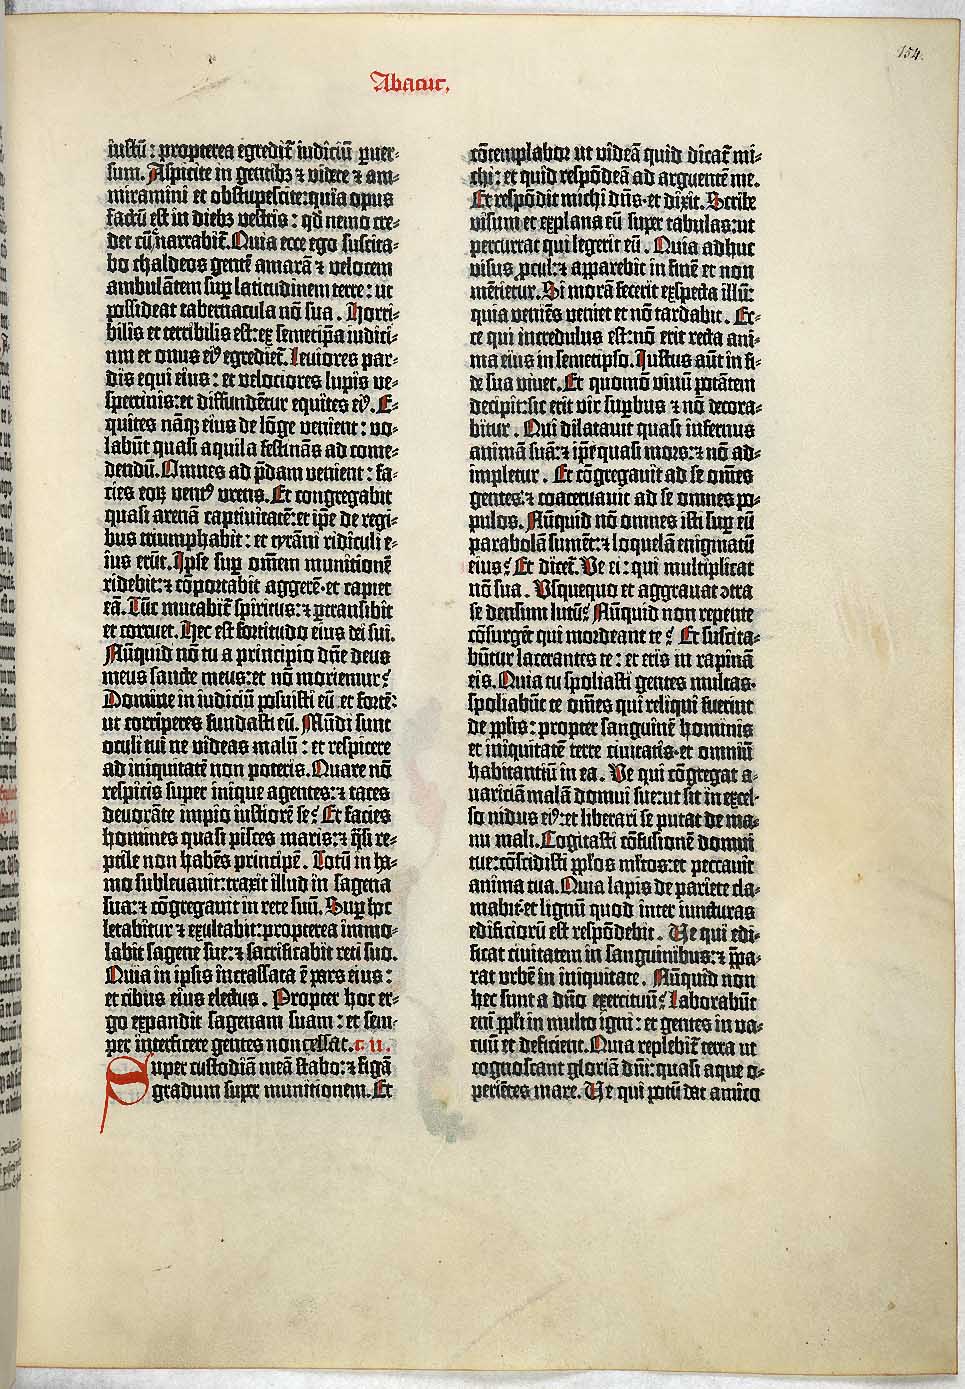 154.
Abacuc.
iustū : propterea egredit̄ iudiciū ꝑuer-
sum. Aspicite in gentibꝫ ⁊ videte ⁊ am-
miramini et obstupescite: quia opus
factū est in diebꝫ vestris : qđ nemo cre-
det cū narrabit̄. Quia ecce ego suscita-
bo chaldeos gentē amarā ⁊ velocem
ambulātem suꝑ latitudinem terre: ut
possideat tabernacula nō sua . Horri-
bilis et terribilis est: ex semetip̄a iudici-
um et onus eiꝰ egrediet̄. Leuiores par-
dis equi eius : et velociores lupis ve-
spertinis: et diffundētur equites eiꝰ. E-
quites nāqꝫ eius de lōge venient : vo-
labūt quasi aquila festinās ad come-
dendū. Omnes ad p̄dam venient : fa-
cies eoꝝ ventꝰ vrens. Et congregabit
quasi arenā captiuitatē: et ip̄e de regi-
bus triumphabit : et tyrāni ridiculi e-
ius erūt. Ipse suꝑ om̄em munitionē
ridebit: ⁊ cōportabit aggerē· et capiet
eā. Tūc mutabit̄ spiritus: ⁊ ꝑtransibit
et corruet. Hec est fortitudo eius dei sui.
Nūquid nō tu a principio dn̄e deus
meus sancte meus: et nō moriemur?
Domine in iudiciū posuisti eū et fortē:
ut corriperes fundasti eū. Mūdi sunt
oculi tui ne videas malū : et respicere
ad iniquitatē non poteris. Quare nō
respicis super inique agentes: ⁊ taces
deuorāte impio iustiorē se? Et facies
homines quasi pisces maris: ⁊ q̄si re-
ptile non habēs principē . Totū in ha-
mo subleuauit: traxit illud in sagena
sua: ⁊ cōgregauit in rete suū. Suꝑ hoc
letabitur ⁊ exultabit: propterea immo-
labit sagene sue: ⁊ sacrificabit reti suo.
Quia in ipsis incrassata ē pars eius :
et cibus eius electus . Propter hoc er-
go expandit sagenam suam : et sem-
per interficere gentes non cessat. c. ii.
Super custodiā meā stabo: ⁊ figā
gradum super munitionem. Et
cōtemplabor ut videā quid dicat̄ mi-
chi : et quid respōdeā ad arguentē me.
Et respōdit michi dn̄s· et dixit. Scribe
visum et explana eū super tabulas: ut
percurrat qui legerit eū . Quia adhuc
visus ꝓcul: ⁊ apparebit in finē et non
mētietur. Si morā fecerit exspecta illū:
quia veniēs veniet et nō tardabit. Ec-
ce qui incredulus est: nō erit recta ani-
ma eius in semetipso. Iustus aūt in fi-
de sua viuet. Et quomō vinū potātem
decipit: sic erit vir suꝑbus ⁊ nō decora-
bitur . Qui dilatauit quasi infernus
animā suā: ⁊ ip̄e quasi mors: ⁊ nō ad-
impletur . Et cōgregauit ad se om̄es
gentes: ⁊ coaceruauit ad se omnes po-
pulos. Nūquid nō omnes isti suꝑ eū
parabolā sument: ⁊ loquelā enigmatū
eius? Et dicet̄. Ve ei : qui multiplicat
nō sua . Vsquequo et aggrauat ↄtra
se densum lutū? Nūquid non repente
cōsurgēt qui mordeant te? Et suscita-
būtur lacerantes te : et eris in rapinā
eis. Quia tu spoliasti gentes multas·
spoliabūt te om̄es qui reliqui fuerint
de pp̄lis : propter sanguinē hominis
et iniquitatē terre ciuitatis· et omniū
habitantiū in ea . Ve qui cōgregat a-
uariciā malā domui sue: ut sit in excel-
so nidus eiꝰ: et liberari se putat de ma-
nu mali. Cogitasti cōfusionē domui
tue: cōscidisti pp̄los ml̄tos: et peccauit
anima tua. Quia lapis de pariete cla-
mabit· et lignū quod inter iuncturas
edificiorū est respōdebit . Ve qui edi-
ficat ciuitatem in sanguinibus: ⁊ p̄pa-
rat urbē in iniquitate . Nūquid non
hec sunt a dn̄o exercituū? Laborabūt
enī pp̄li in multo igni : et gentes in va-
cuū et deficient. Quia replebit̄ terra ut
cognoscant gloriā dn̄i: quasi aque o-
perientes mare. Ve qui potū dat amico